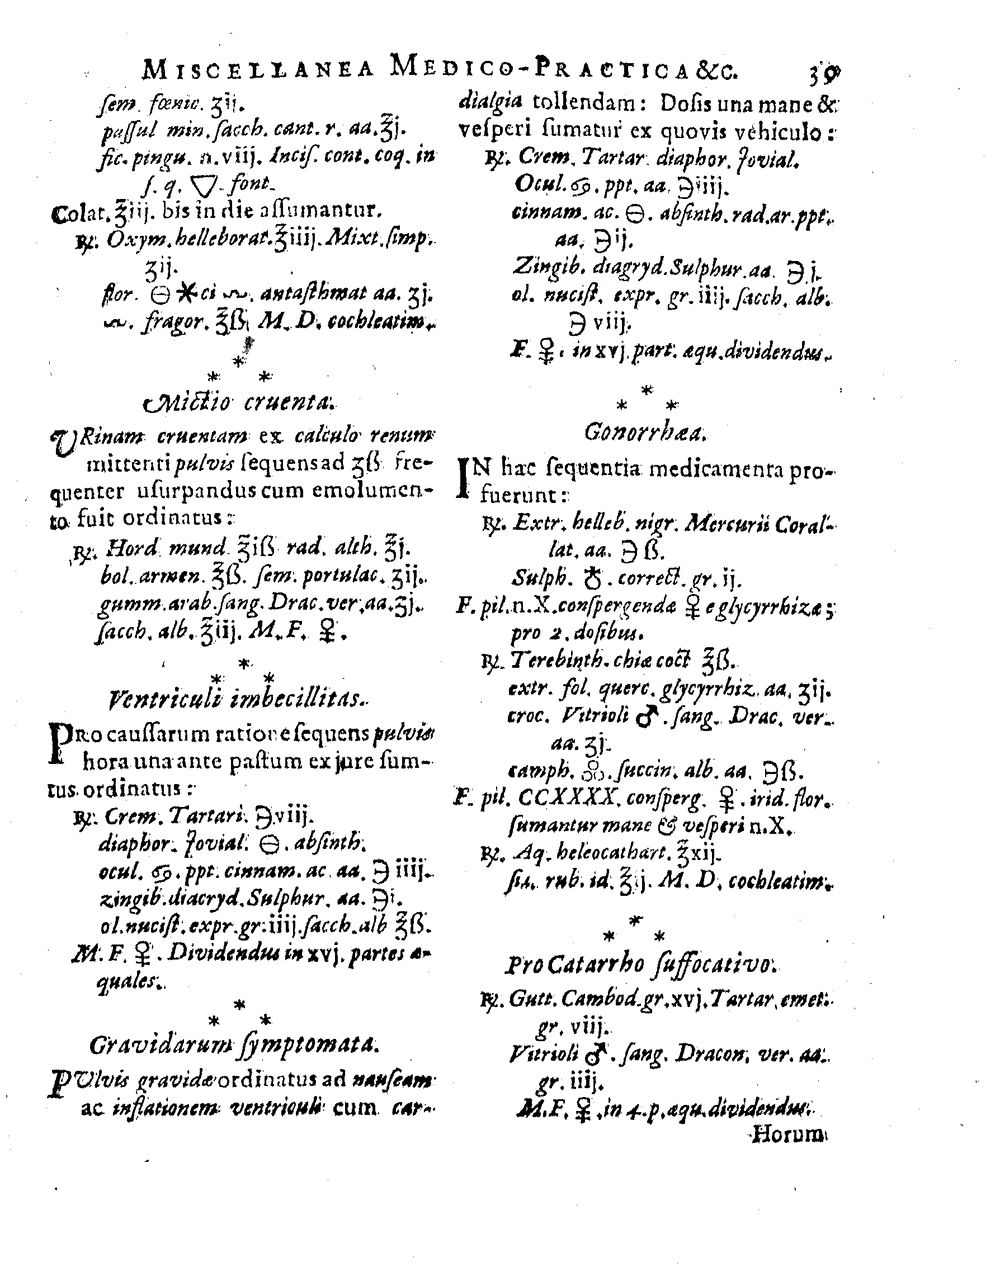 MISCELLANEA MEDICO-PRACTICA &C. 39
ſem. fœnic. ʒij.
paſſul min. ſacch. cant. r. aa. ℥j.
fic. pingu. n. viij. Inciſ. cont. coq. in
ſ. q. 🜄. font.
Colat. ℥iij. bis in die aſſumantur.
℞. Oxym. helleborat. ℥iiij. Mixt. ſimp.
ʒij.
flor. 🜔 ✶ci 🝳. antaſthmat aa. ʒj.
🝳. fragor. ℥ß. M. D. cochleatim.
* * *
Mictio cruenta.
URinam cruentam ex calculo renum
mittenti pulvis ſequens ad ʒß fre-
quenter uſurpandus cum emolumen-
to fuit ordinatus:
℞. Hord mund. ℥iß rad. alth. ℥j.
bol. armen. ℥ß. ſem. portulac. ʒij.
gumm. arab. ſang. Drac. ver. aa. ʒj.
ſacch. alb. ℥iij. M. F. ♀.
* * *
Ventriculi imbecillitas.
PRo cauſſarum ratione ſequens pulvis
hora una ante paſtum ex jure ſum-
tus ordinatus:
℞. Crem. Tartari. ℈viij.
diaphor. Jovial. 🜔. abſinth.
ocul. ♋. ppt. cinnam. ac. aa. ℈ iiij.
zingib. diacryd. Sulphur. aa. ℈i.
ol. nuciſt. expr. gr. iiij. ſacch. alb ℥ß.
M. F. ♀. Dividendus in xvj. partes æ-
quales.
* * *
Gravidarum ſymptomata.
PUlvis gravidæ ordinatus ad nauſeam
ac inflationem ventriculi cum car-
dialgia tollendam: Doſis una mane &
veſperi ſumatur ex quovis vehiculo:
℞. Crem. Tartar. diaphor. Jovial.
Ocul. ♋. ppt. aa. ℈iiij.
cinnam. ac. 🜔. abſinth. rad. ar. ppt.
aa. ℈ij.
Zingib. diagryd. Sulphur. aa. ℈ j.
ol. nuciſt. expr. gr. iiij. ſacch. alb.
℈ viij.
F. ♀. in xvj. part. æqu. dividendus.
* * *
Gonorrhæa.
IN hac ſequentia medicamenta pro-
fuerunt:
℞. Extr. helleb. nigr. Mercurii Coral-
lat. aa. ℈ ß.
Sulph. ♁. correct. gr. ij.
F. pil. n. X. conſpergendæ ♀ e glycyrrhiza;
pro 2. doſibus.
℞. Terebinth. chiæ coct ℥ß.
extr. fol. querc. glycyrrhiz. aa. ʒij.
croc. Vitrioli ♂. ſang. Drac. ver.
aa. ʒj.
camph. ஃ. ſuccin. alb. aa. ℈ß.
F. pil. CCXXXX. conſperg. ♀. irid. flor.
ſumantur mane & veſperi n. X.
℞. Aq. heleocathart. ℥xij.
rub. id. ℥ij. M. D. cochleatim.
* * *
Pro Catarrho ſuffocativo.
℞. Gutt. Cambod. gr. xvj. Tartar. emet.
gr. viij.
Vitrioli ♂. ſang. Dracon. ver. aa.
gr. iiij.
M. F. ♀. in 4. p. æqu. dividendus.
Horum